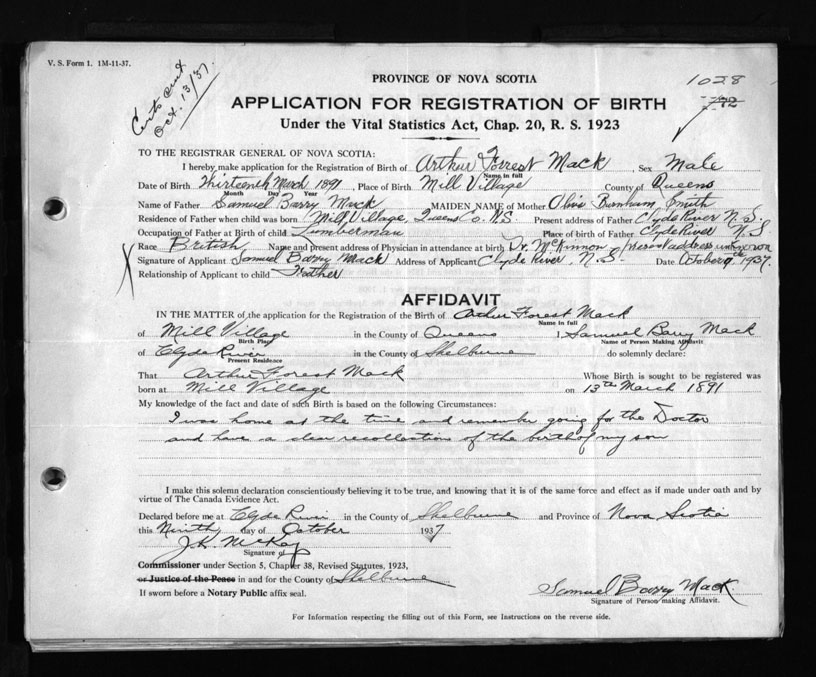 V. S. Form 1. 1M-11-37.
Certs sent
Oct. 13/37.
1028
PROVINCE OF NOVA SCOTIA
APPLICATION FOR REGISTRATION OF BIRTH
Under the Vital Statistics Act, Chap. 20, R. S. 1923
TO THE REGISTRAR GENERAL OF NOVA SCOTIA:
I hereby make application for the Registration of Birth of Arthur Forrest Mack, Sex Male
Name in full
Date of Birth Thirteenth March 1891, Place of Birth Mill Village County of Queens
Month Day Year
Name of Father Samuel Barry Mack MAIDEN NAME of Mother Olivia Burnham Smith
Residence of Father when child was born Mill Village, Queens Co. N.S. Present address of Father Clyde River N.S.
Occupation of Father at Birth of child Lumberman Place of birth of Father Clyde River N S
Race British Name and present address of Physician in attendance at birth Dr. McKinnon present address unknown
Signature of Applicant Samuel Barry Mack Address of Applicant Clyde River, N.S. Date October 9th 1937.
Relationship of Applicant to child Father
AFFIDAVIT
IN THE MATTER of the application for the Registration of the Birth of Arthur Forest Mack
Name in full
of Mill Village in the County of Queens I, Samuel Barry Mack
Birth Place Name of Person Making Affidavit
of Clyde River in the County of Shelburne do solemnly declare:
Present Residence
That Arthur Forest Mack Whose Birth is sought to be registered was
born at Mill Village on 13th March 1891
My knowledge of the fact and date of such Birth is based on the following Circumstances:
I was home at the time and remember going for the Doctor
and have a clear recollection of the birth of my son
I make this solemn declaration conscientiously believing it to be true, and knowing that it is of the same force and effect as if made under oath and by
virtue of The Canada Evidence Act.
Declared before me at Clyde River in the County of Shelburne and Province of Nova Scotia
this Ninth day of October 1937
J.H. McKay
Signature of
Commissioner under Section 5, Chapter 38, Revised Statutes, 1923,
or Justice of the Peace in and for the County of Shelburne
If sworn before a Notary Public affix seal.
Samuel Barry Mack.
Signature of Person making Affidavit.
For Information respecting the filling out of this Form, see Instructions on the reverse side.